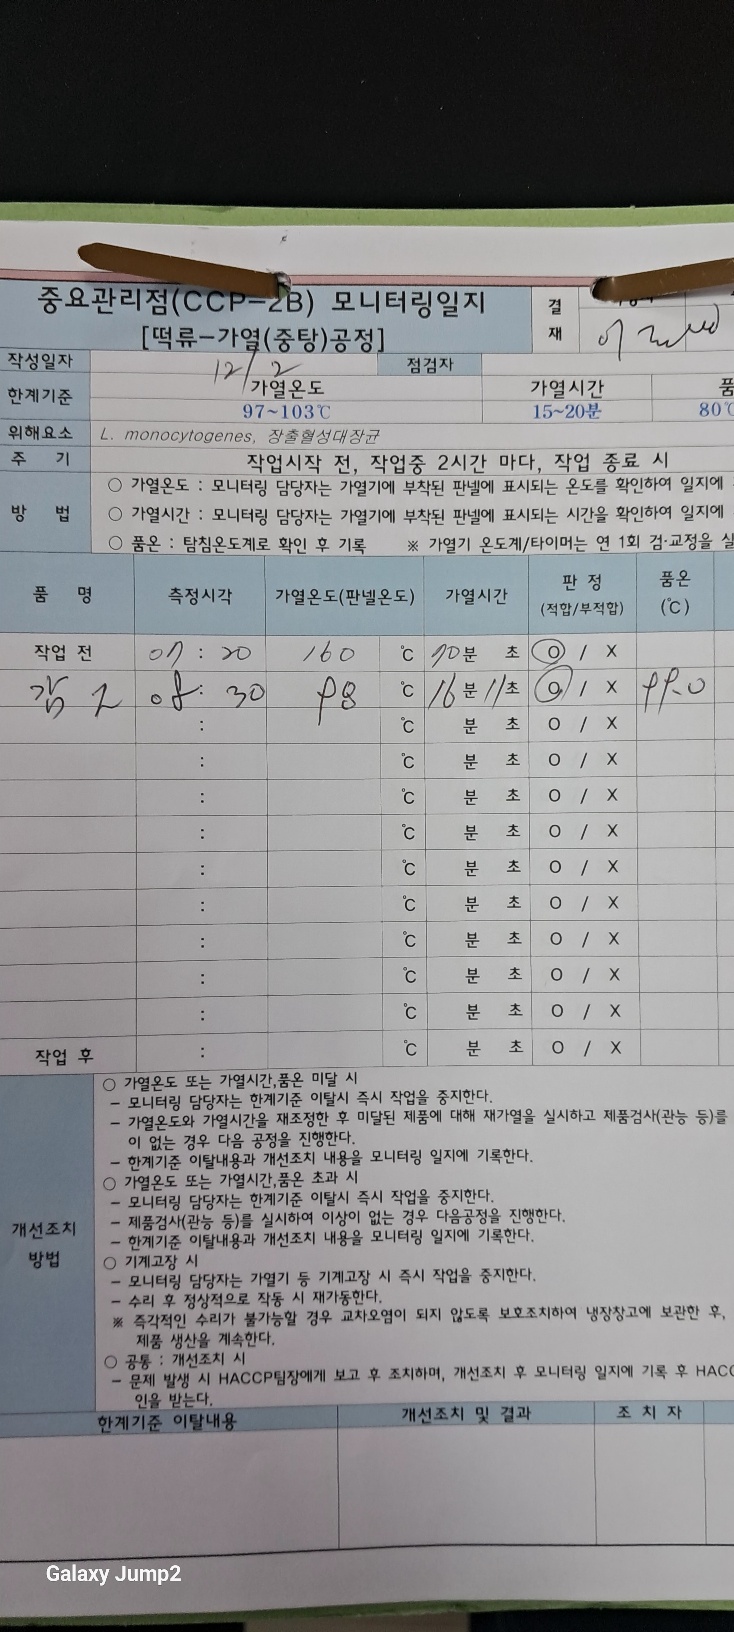 중요관리점(CCP-2B) 모니터링일지
[떡류-가열(중탕)공정]
결
재
작성일자 12/2 점검자
한계기준 가열온도 가열시간 품
97~103℃ 15~20분 80℃
위해요소 L. monocytogenes, 장출혈성대장균
주 기 작업시작 전, 작업중 2시간 마다, 작업 종료 시
방 법
○ 가열온도 : 모니터링 담당자는 가열기에 부착된 판넬에 표시되는 온도를 확인하여 일지에
○ 가열시간 : 모니터링 담당자는 가열기에 부착된 판넬에 표시되는 시간을 확인하여 일지에
○ 품온 : 탐침온도계로 확인 후 기록 ※ 가열기 온도계/타이머는 연 1회 검·교정을 실
품 명 측정시각 가열온도(판넬온도) 가열시간 판 정 (적합/부적합) 품온 (℃)
작업 전 07 : 20 160 ℃ 분 초 O / X
08 : 30 98 ℃ 16 분 11 초 O / X 99.0
: ℃ 분 초 O / X
: ℃ 분 초 O / X
: ℃ 분 초 O / X
: ℃ 분 초 O / X
: ℃ 분 초 O / X
: ℃ 분 초 O / X
: ℃ 분 초 O / X
: ℃ 분 초 O / X
: ℃ 분 초 O / X
작업 후 : ℃ 분 초 O / X
개선조치
방법
○ 가열온도 또는 가열시간,품온 미달 시
- 모니터링 담당자는 한계기준 이탈시 즉시 작업을 중지한다.
- 가열온도와 가열시간을 재조정한 후 미달된 제품에 대해 재가열을 실시하고 제품검사(관능 등)를
이 없는 경우 다음 공정을 진행한다.
- 한계기준 이탈내용과 개선조치 내용을 모니터링 일지에 기록한다.
○ 가열온도 또는 가열시간,품온 초과 시
- 모니터링 담당자는 한계기준 이탈시 즉시 작업을 중지한다.
- 제품검사(관능 등)를 실시하여 이상이 없는 경우 다음공정을 진행한다.
- 한계기준 이탈내용과 개선조치 내용을 모니터링 일지에 기록한다.
○ 기계고장 시
- 모니터링 담당자는 가열기 등 기계고장 시 즉시 작업을 중지한다.
- 수리 후 정상적으로 작동 시 재가동한다.
※ 즉각적인 수리가 불가능할 경우 교차오염이 되지 않도록 보호조치하여 냉장창고에 보관한 후,
제품 생산을 계속한다.
○ 공통 : 개선조치 시
- 문제 발생 시 HACCP팀장에게 보고 후 조치하며, 개선조치 후 모니터링 일지에 기록 후 HACC
인을 받는다.
한계기준 이탈내용 개선조치 및 결과 조 치 자
Galaxy Jump2